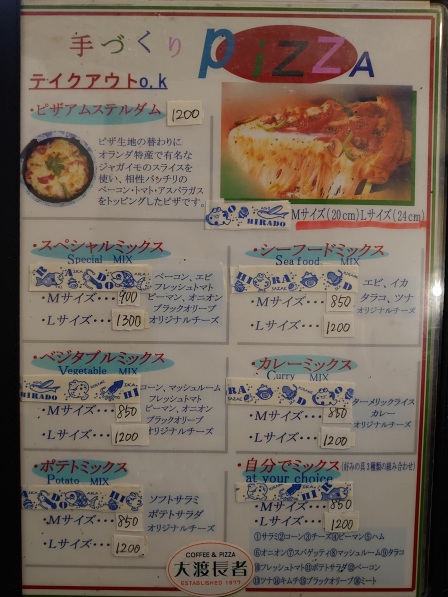 手づくり PiZZA
テイクアウトo.k
・ピザアムステルダム 1200
ピザ生地の替わりに
オランダ特産で有名な
ジャガイモのスライスを
使い、相性バッチリの
ベーコン・トマト・アスパラガス
をトッピングしたピザです。
HIRADO
Mサイズ(20cm)Lサイズ(24cm)
・スペシャルミックス
Special MIX
ベーコン、エビ
フレッシュトマト
ピーマン、オニオン
ブラックオリーブ
オリジナルチーズ
・Mサイズ・・・ 900
・Lサイズ・・・ 1300
・シーフードミックス
Sea food MIX
エビ、イカ
タラコ、ツナ
オリジナルチーズ
・Mサイズ・・・ 850
・Lサイズ・・・ 1200
・ベジタブルミックス
Vegetable MIX
HIRADO
コーン、マッシュルーム
フレッシュトマト
ピーマン、オニオン
ブラックオリーブ
オリジナルチーズ
・Mサイズ・・・ 850
・Lサイズ・・・ 1200
・カレーミックス
Curry MIX
ターメリックライス
カレー
オリジナルチーズ
・Mサイズ・・・ 850
・Lサイズ・・・ 1200
・ポテトミックス
Potato MIX
ソフトサラミ
ポテトサラダ
オリジナルチーズ
・Mサイズ・・・ 850
・Lサイズ・・・ 1200
・自分でミックス (好みの具3種類の組み合わせ)
at your choice
・Mサイズ・・・ 850
・Lサイズ・・・ 1200
①サラミ②コーン③チーズ④ピーマン⑤ハム
⑥オニオン⑦スパゲッティ⑧マッシュルーム⑨タラコ
⑩フレッシュトマト⑪ポテトサラダ⑫ベーコン
⑬ツナ⑭キムチ⑮ブラックオリーブ⑯ミート
COFFEE & PIZZA
大渡長者
ESTABLISHED 1977